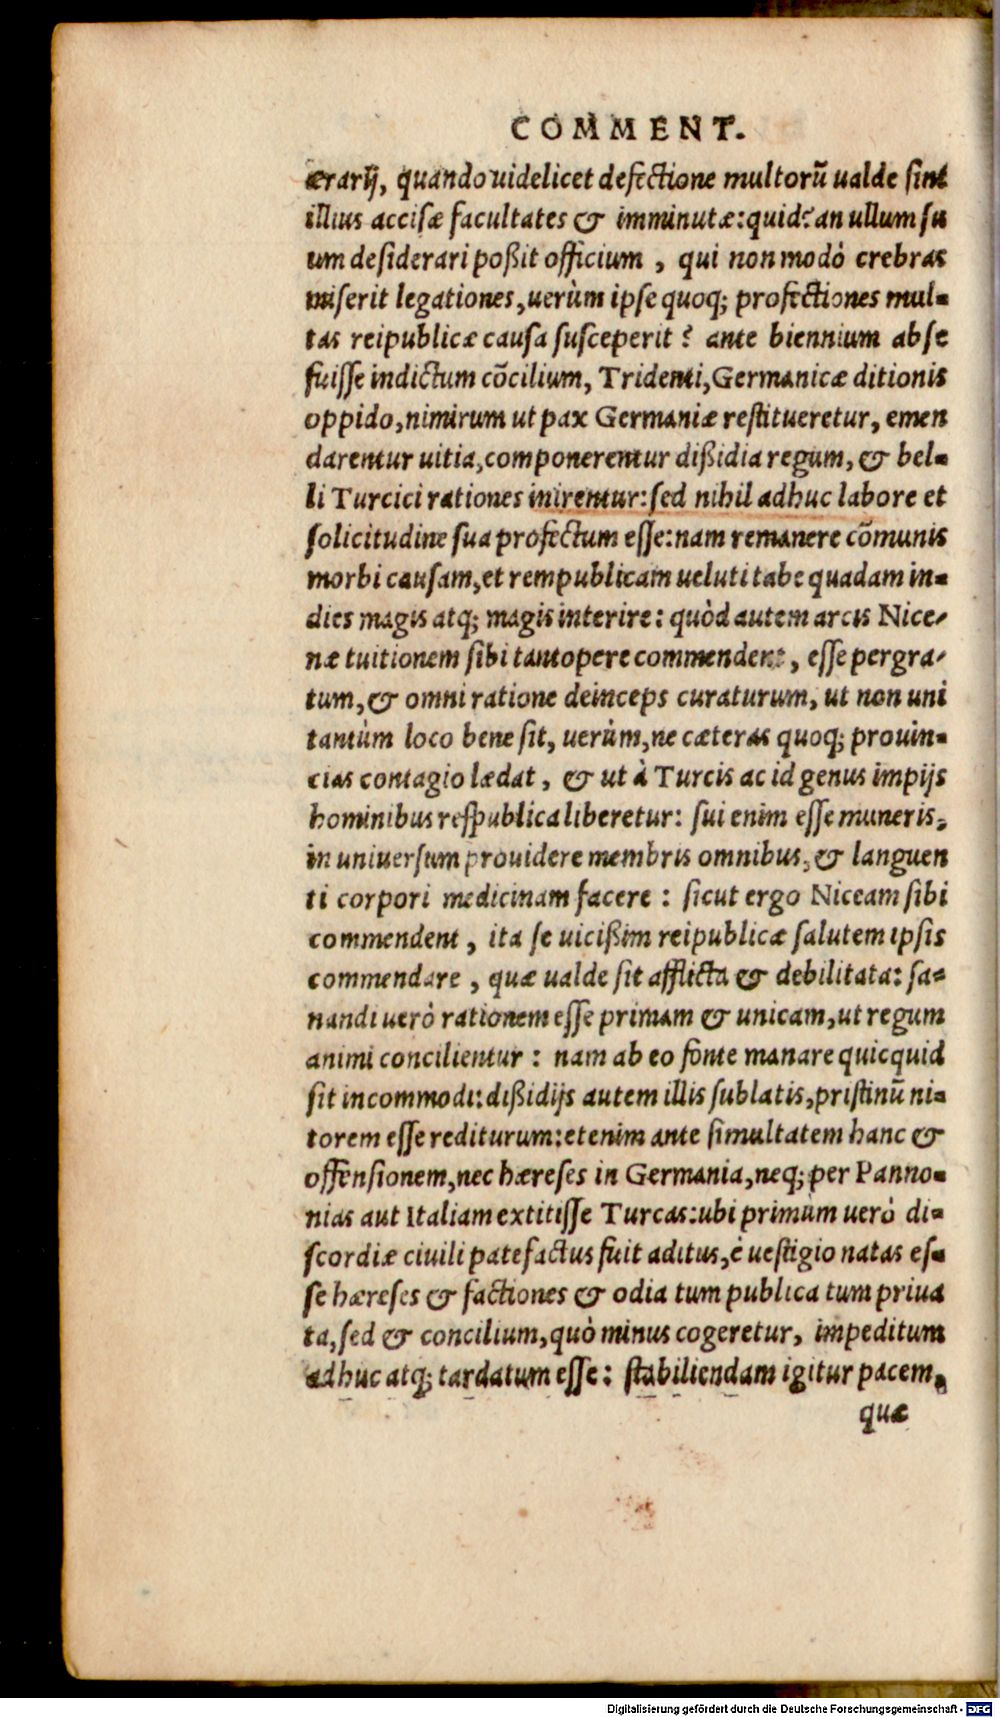 COMMENT.
ærarij, quando uidelicet defectione multorũ ualde sint
illius accisæ facultates & imminutæ: quid? an ullum su
um desiderari poßit officium, qui non modò crebras
miserit legationes, uerùm ipse quoq; profectiones mul-
tas reipublicæ causa susceperit? ante biennium ab se
fuisse indictum cõcilium, Tridenti, Germanicæ ditionis
oppido, nimirum ut pax Germaniæ restitueretur, emen
darentur uitia, componerentur dißidia regum, & bel-
li Turcici rationes inirentur: sed nihil adhuc labore et
solicitudine sua profectum esse: nam remanere cõmunis
morbi causam, et rempublicam ueluti tabe quadam in-
dies magis atq; magis interire: quòd autem arcis Nice-
næ tuitionem sibi tantopere commendent, esse pergra-
tum, & omni ratione deinceps curaturum, ut non uni
tantùm loco bene sit, uerùm, ne cæteras quoq; prouin-
cias contagio lædat, & ut à Turcis ac id genus impijs
hominibus respublica liberetur: sui enim esse muneris,
in uniuersum prouidere membris omnibus, & languen
ti corpori medicinam facere: sicut ergo Niceam sibi
commendent, ita se uicißim reipublicæ salutem ipsis
commendare, quæ ualde sit afflicta & debilitata: sa-
nandi uerò rationem esse primam & unicam, ut regum
animi concilientur: nam ab eo fonte manare quicquid
sit incommodi: dißidijs autem illis sublatis, pristinũ ni-
torem esse rediturum: etenim ante simultatem hanc &
offensionem, nec hæreses in Germania, neq; per Panno-
nias aut Italiam extitisse Turcas: ubi primùm uerò di-
scordiæ ciuili patefactus fuit aditus, è uestigio natas es-
se hæreses & factiones & odia tum publica tum priua
ta, sed & concilium, quò minus cogeretur, impeditum
adhuc atq; tardatum esse: stabiliendam igitur pacem,
quæ
Digitalisierung gefördert durch die Deutsche Forschungsgemeinschaft - DFG